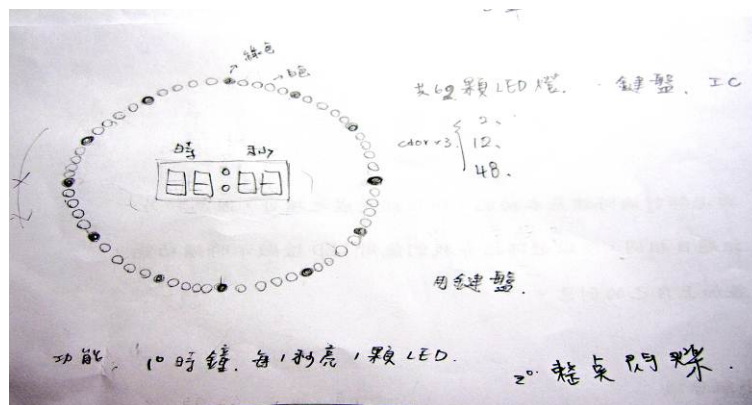 綠色
白色
共62顆LED燈. 鍵盤、IC
color×3
2、
12、
48、
時
用鍵盤.
功能、1° 時鐘. 每1秒亮1顆LED.
2° 整點閃爍.